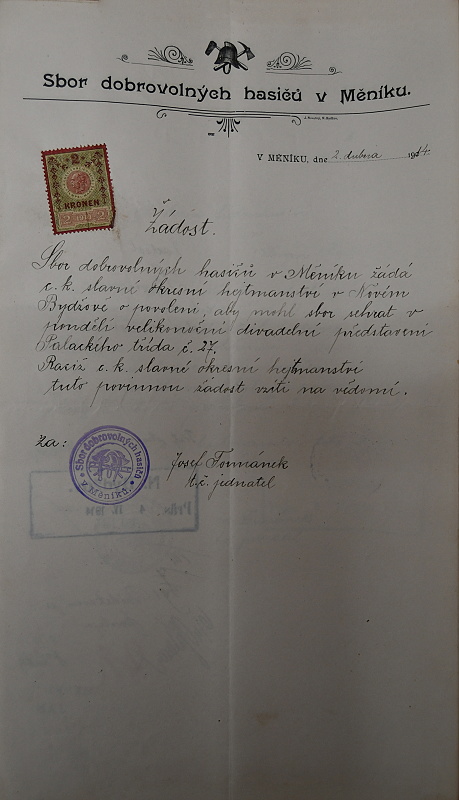 Sbor dobrovolných hasičů v Měníku.
V MĚNÍKU, dne 2. dubna 1914.
2
KRONEN
Žádost.
Sbor dobrovolných hasičů v Měníku žádá
c. k. slavné okresní hejtmanství v Novém
Bydžově o povolení, aby mohl sbor sehrat v
pondělí velikonoční divadelní představení
Palackého třída č. 27.
Račiž c. k. slavné okresní hejtmanství
tuto povinnou žádost vzíti na vědomí.
Za:
Sbor dobrovolných hasičů
v Měníku
Josef Tománek
t. č. jednatel